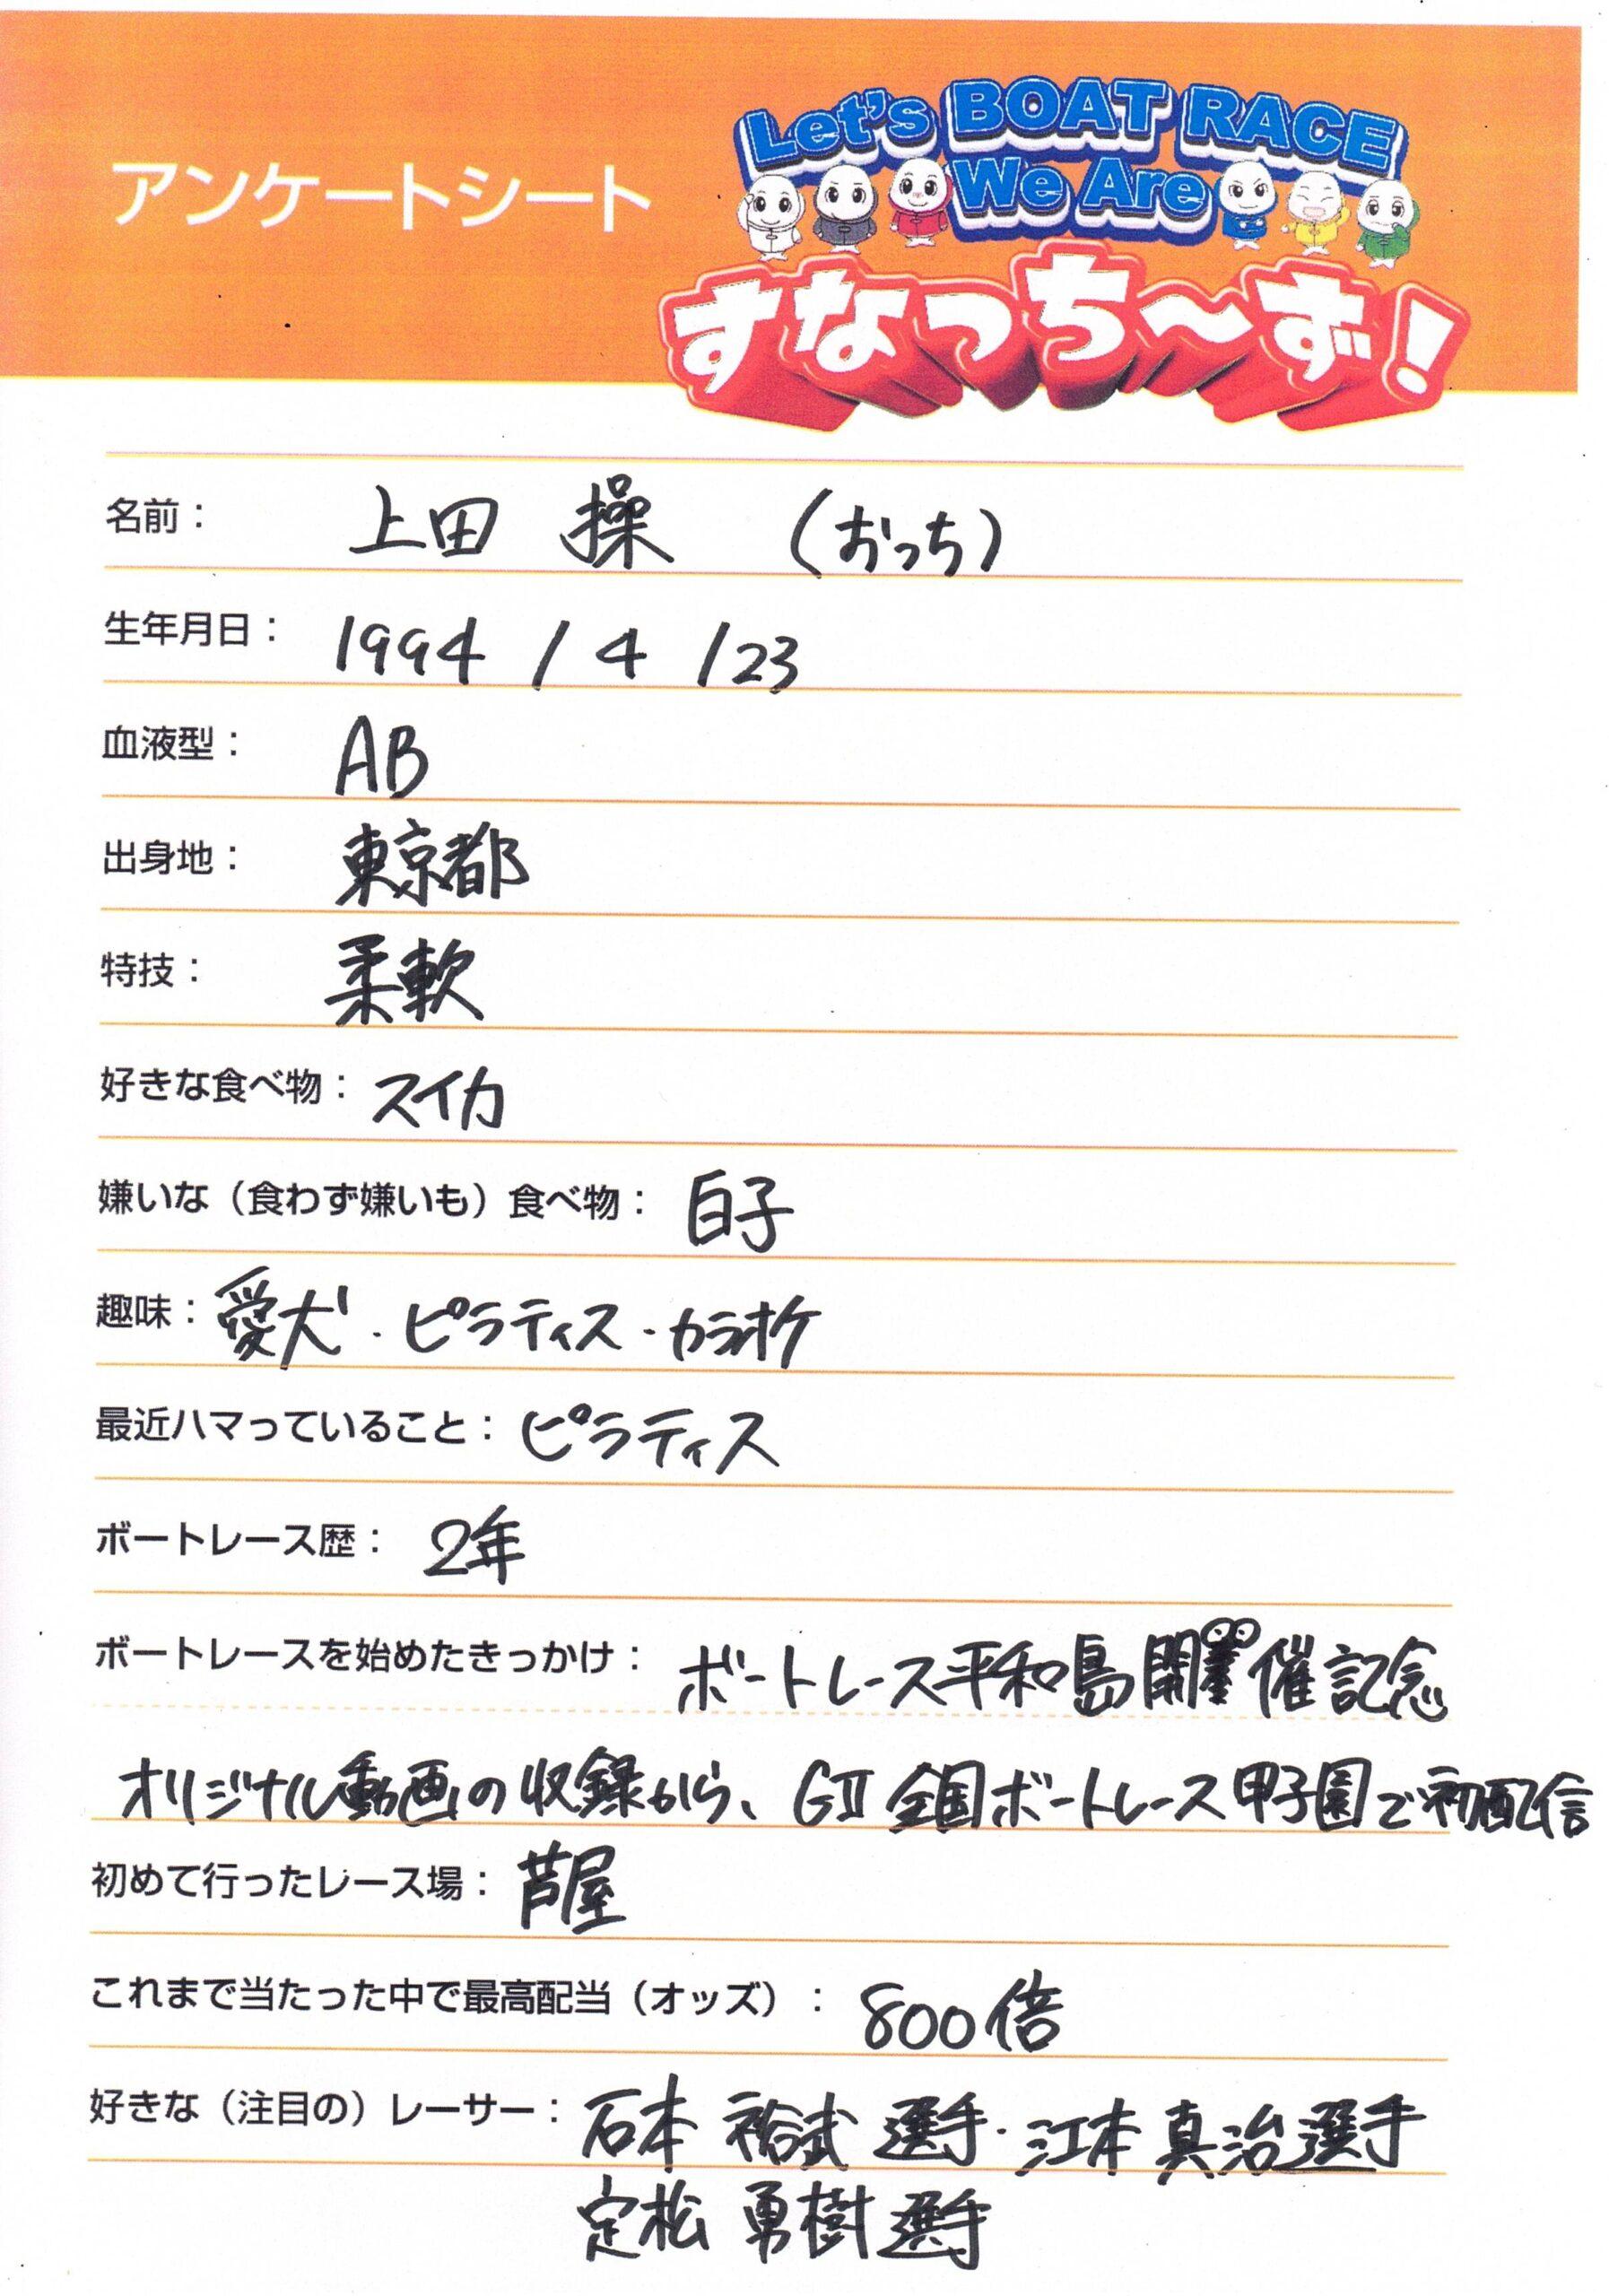 アンケートシート
Let's BOAT RACE
We Are
すなっち～ず！
名前： 上田 操 （おっち）
生年月日： 1994 / 4 / 23
血液型： AB
出身地： 東京都
特技： 柔軟
好きな食べ物： スイカ
嫌いな（食わず嫌いも）食べ物： 白子
趣味： 愛犬・ピラティス・カラオケ
最近ハマっていること： ピラティス
ボートレース歴： 2年
ボートレースを始めたきっかけ： ボートレース平和島開催記念
オリジナル動画の収録から、GⅡ全国ボートレース甲子園で初配信
初めて行ったレース場： 芦屋
これまで当たった中で最高配当（オッズ）： 800倍
好きな（注目の）レーサー： 石本 裕武 選手・江本 真治 選手
定松 勇樹 選手